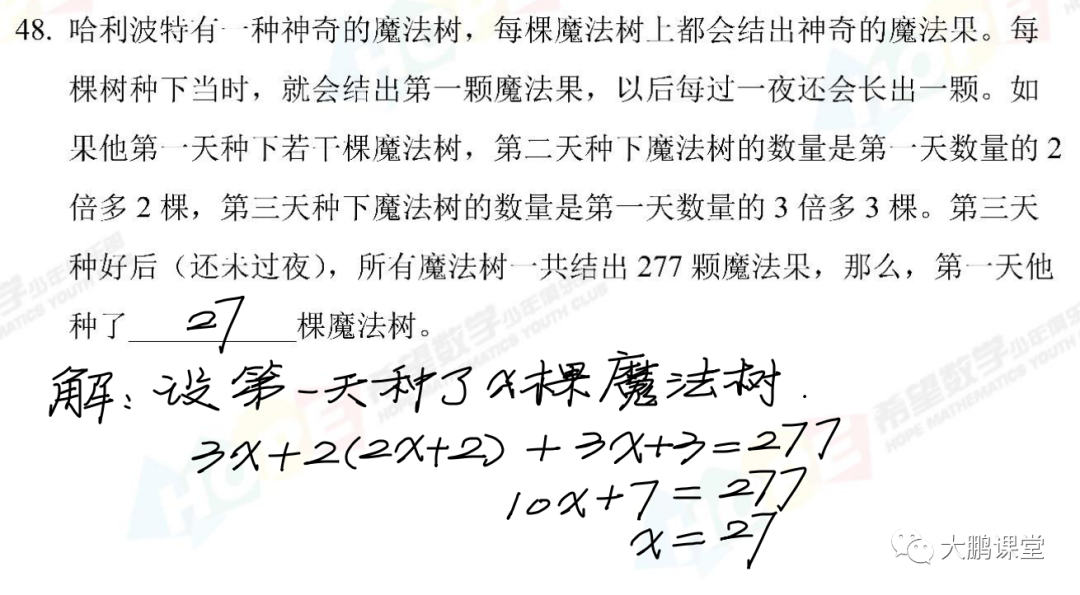 48. 哈利波特有一种神奇的魔法树，每棵魔法树上都会结出神奇的魔法果。每
棵树种下当时，就会结出第一颗魔法果，以后每过一夜还会长出一颗。如
果他第一天种下若干棵魔法树，第二天种下魔法树的数量是第一天数量的 2
倍多 2 棵，第三天种下魔法树的数量是第一天数量的 3 倍多 3 棵。第三天
种好后（还未过夜），所有魔法树一共结出 277 颗魔法果，那么，第一天他
种了 27 棵魔法树。
解：设第一天种了x棵魔法树.
3x+2(2x+2)+3x+3=277
10x+7=277
x=27
大鹏课堂
希望数学少年俱乐部
HOPE MATHEMATICS YOUTH CLUB